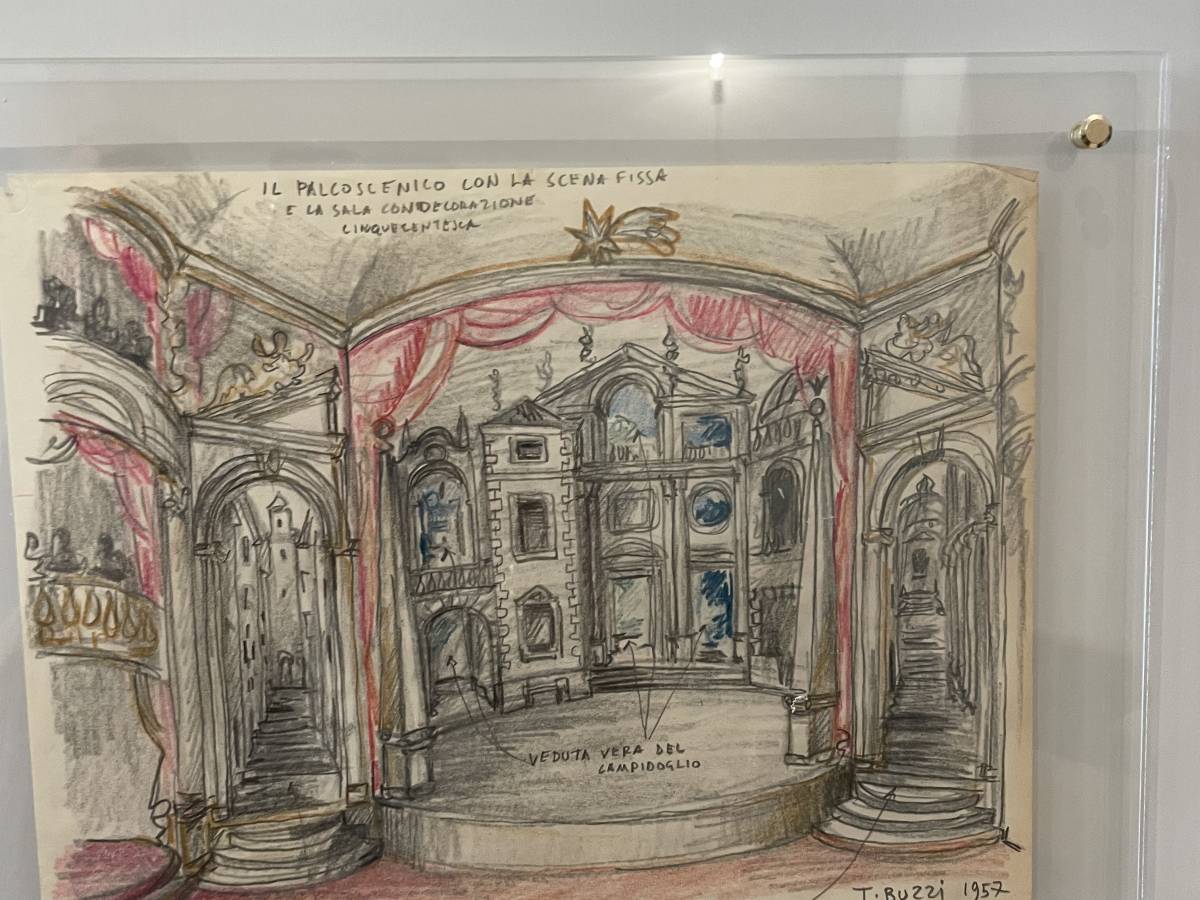 IL PALCOSCENICO CON LA SCENA FISSA
E LA SALA CON DECORAZIONE
CINQUECENTESCA
VEDUTA VERA DEL
CAMPIDOGLIO
T. BUZZI 1957